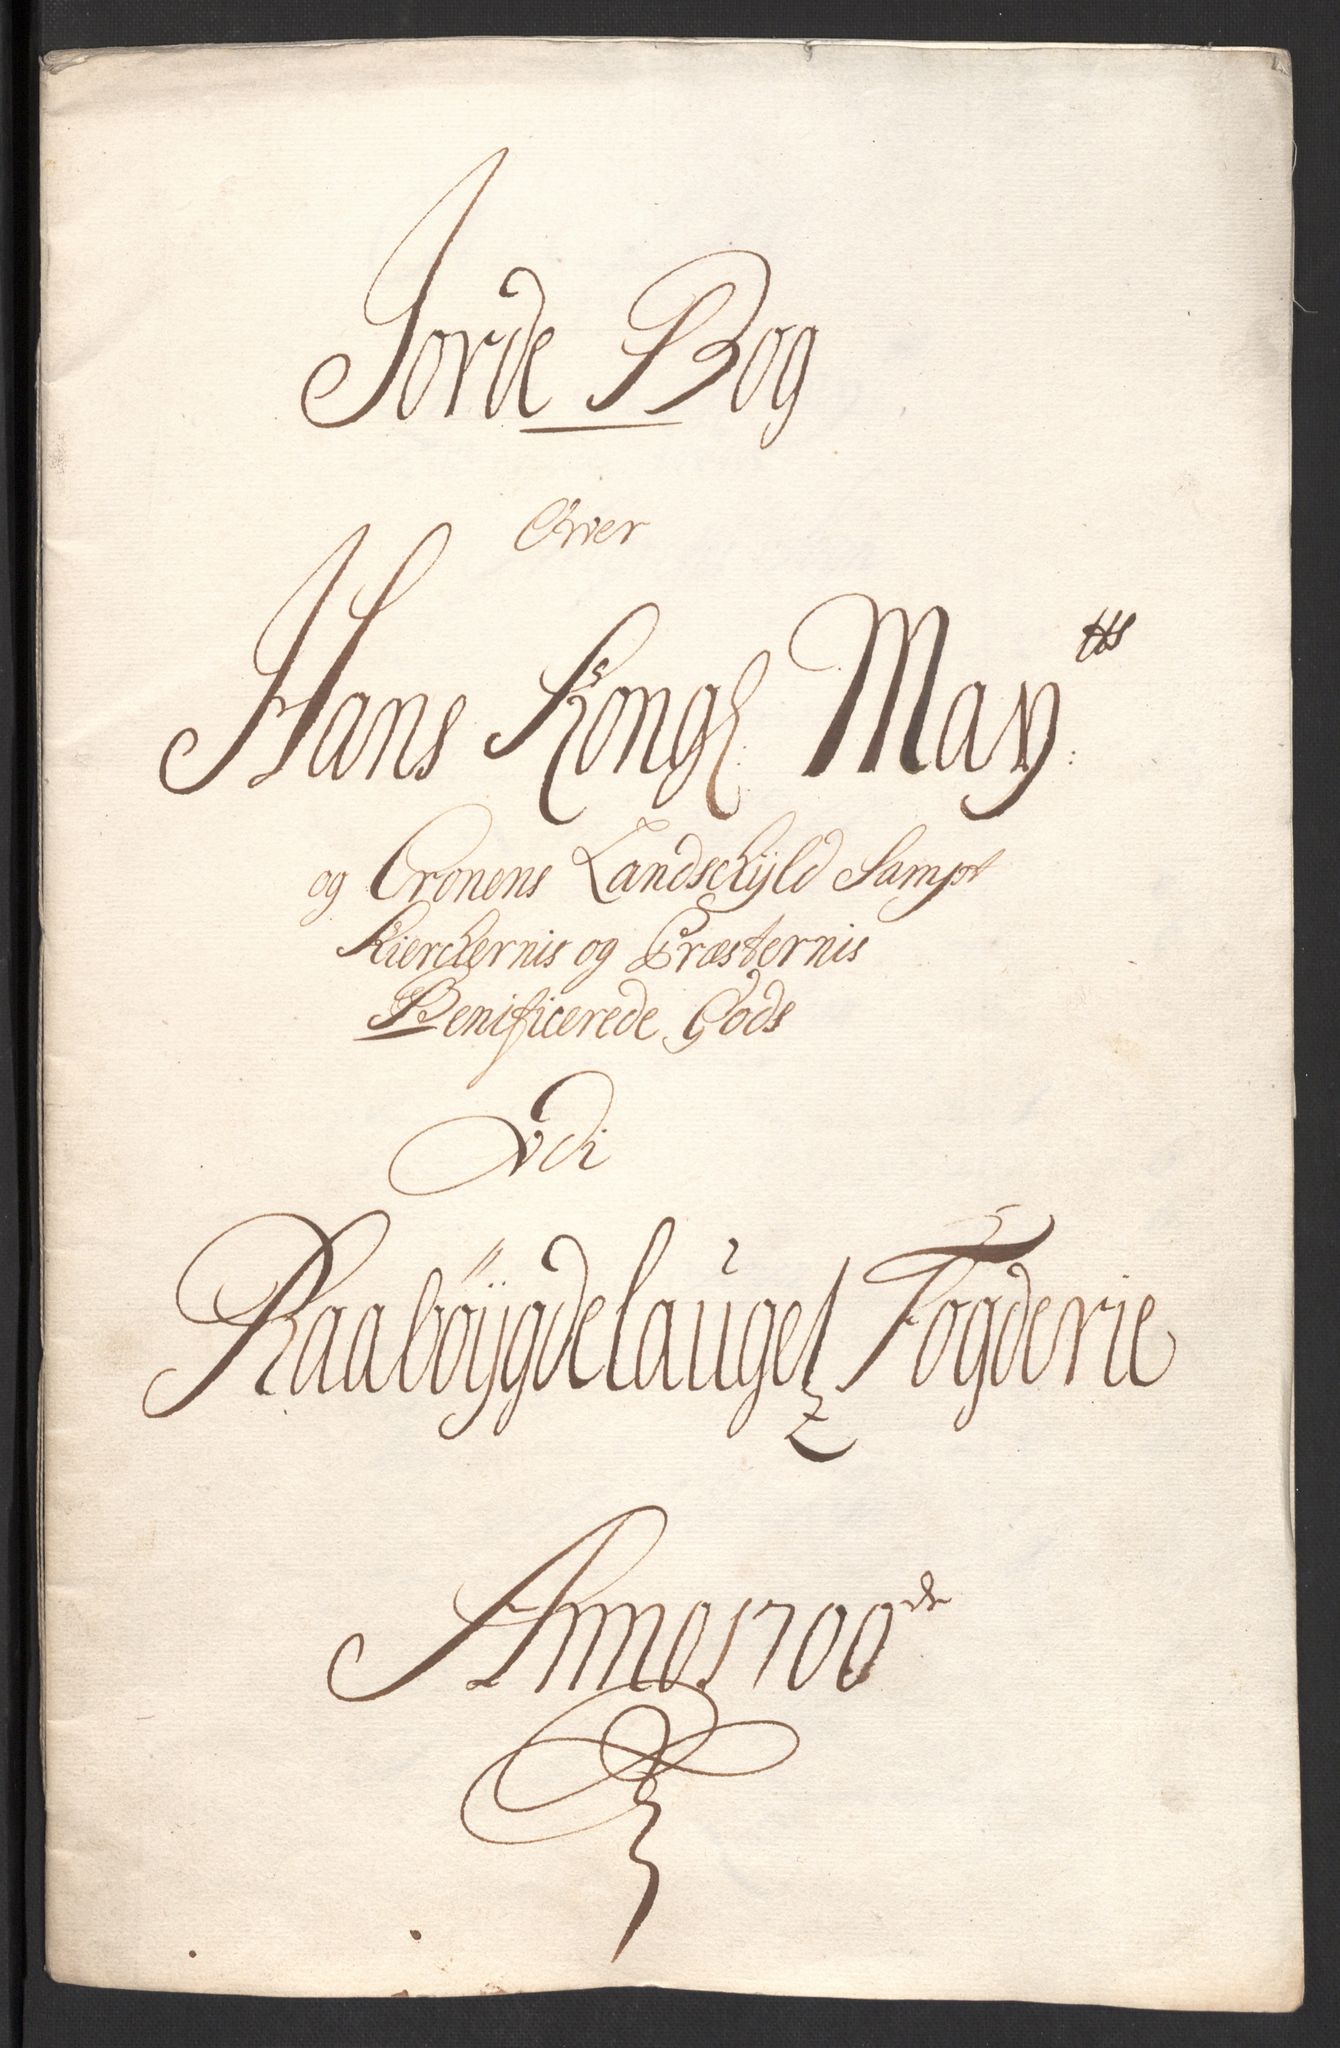 Jorde Bog
Over
Hans Kongl. May:tts
og Cronens Landschyld Sampt
Kierchernis og Præsternis
Benificerede Gods
Vdi
Raaböygdelaugetz Fogderie
Anno 1700de